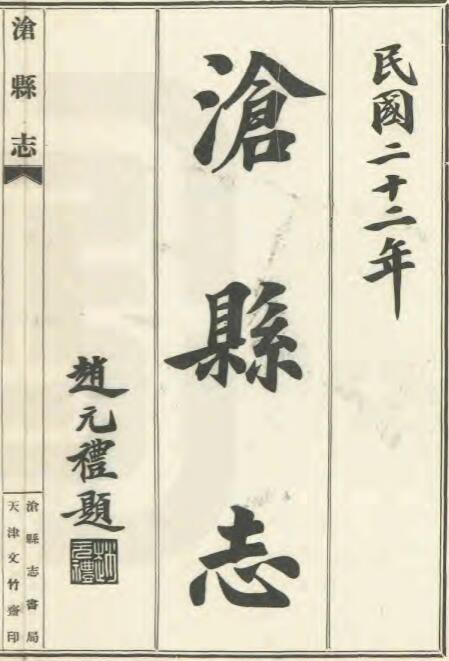 民國二十二年
滄縣志
趙元禮題
趙元禮
滄縣志
滄縣志書局
天津文竹齋印